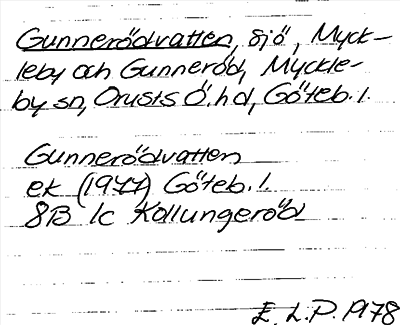 Gunnerödvatten, sjö, Myck-
leby och Gunneröd, Myckle-
by sn, Orusts Ö. hd, Göteb. l.
Gunnerödvatten
ek (1977) Göteb. l.
8B 1c Kollungeröd
E. L. P. 1978